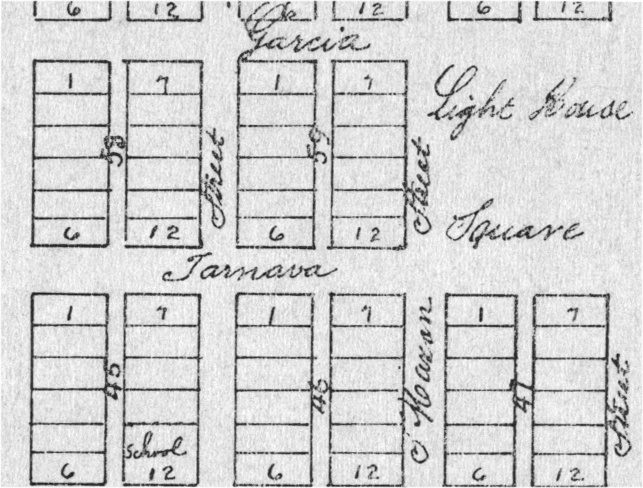 6 12 6 12 6 12
Garcia
1 7 1 7
Light House
58 Street 59 Street
6 12 6 12
Square
Tarnava
1 7 1 7 1 7
45 46 Mazan 47 Street
school
6 12 6 12 6 12